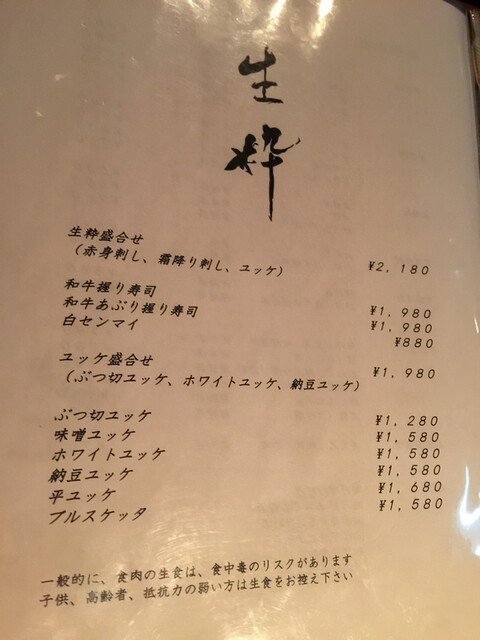 生粋
生粋盛合せ
(赤身刺し、霜降り刺し、ユッケ) ¥2,180
和牛握り寿司 ¥1,980
和牛あぶり握り寿司 ¥1,980
白センマイ ¥880
ユッケ盛合せ
(ぶつ切ユッケ、ホワイトユッケ、納豆ユッケ) ¥1,980
ぶつ切ユッケ ¥1,280
味噌ユッケ ¥1,580
ホワイトユッケ ¥1,580
納豆ユッケ ¥1,580
平ユッケ ¥1,680
ブルスケッタ ¥1,580
一般的に、食肉の生食は、食中毒のリスクがあります
子供、高齢者、抵抗力の弱い方は生食をお控え下さい